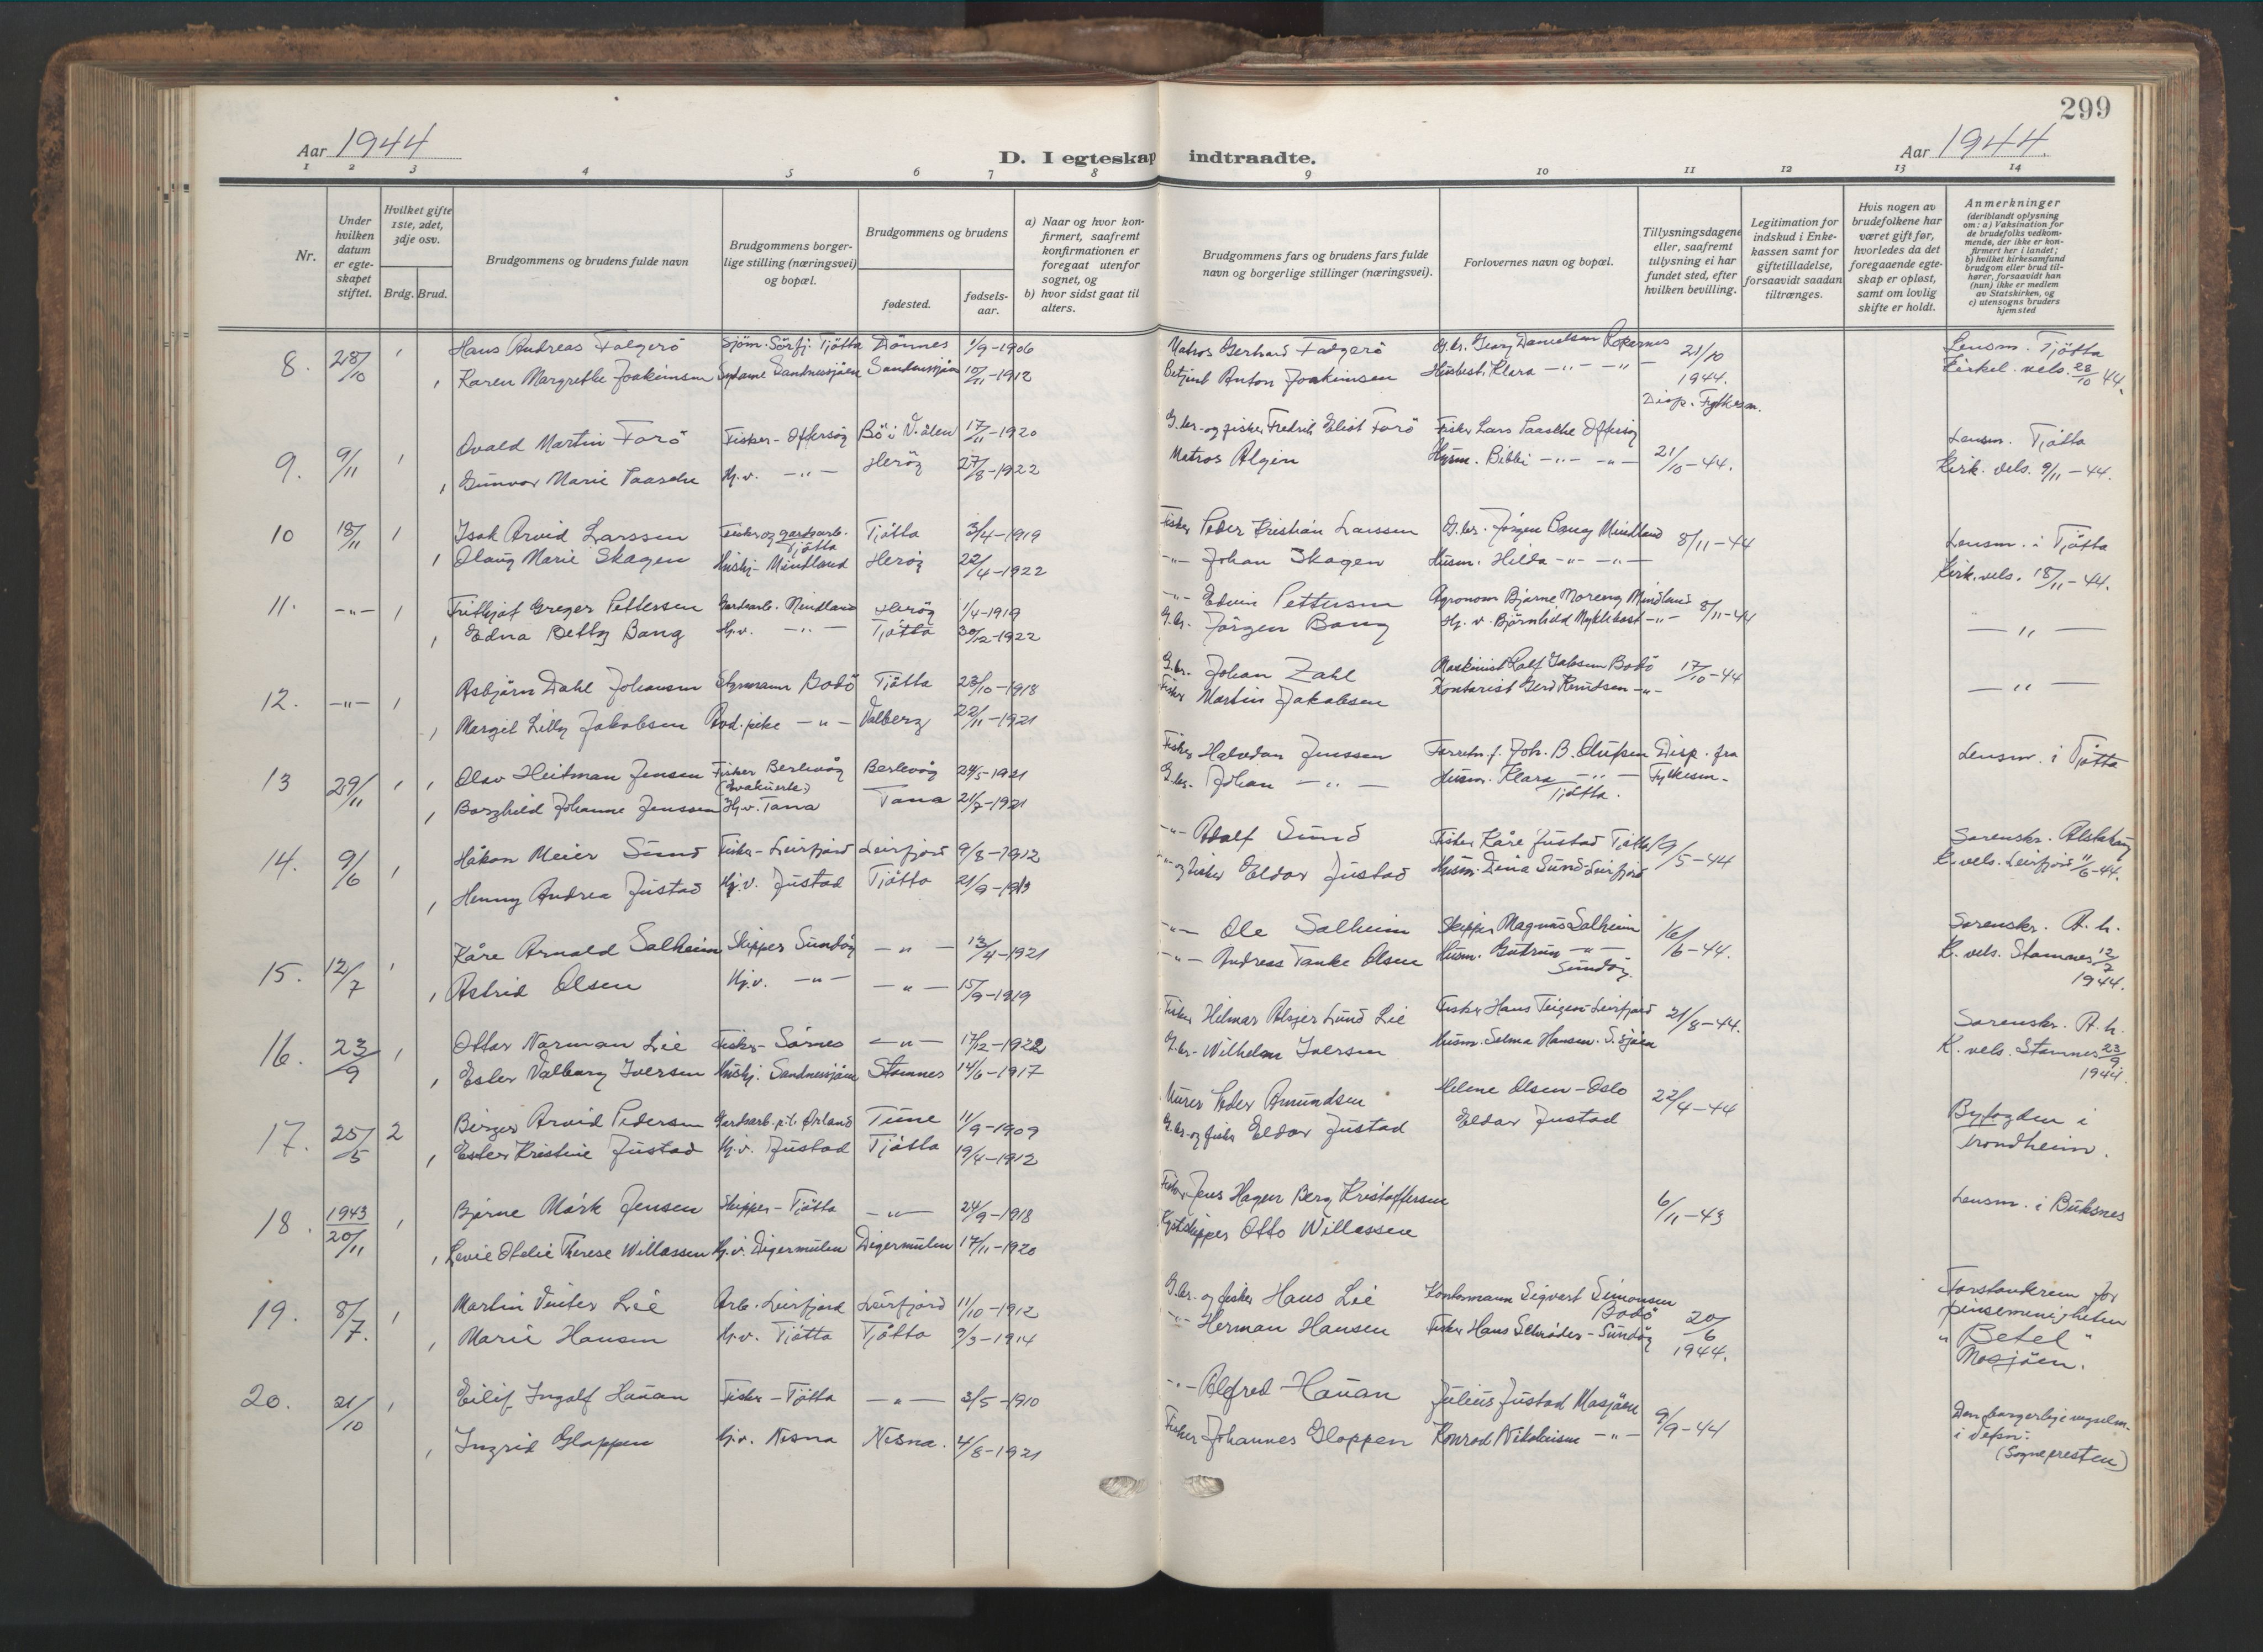 299
Aar 1944
D. I egteskap indtraadte.
Aar 1944
1 2 3 4 5 6 7 8 9 10 11 12 13 14
Nr.
Under hvilken datum er egteskapet stiftet.
Hvilket gifte 1ste, 2det, 3dje osv.
Brdg. Brud.
Brudgommens og brudens fulde navn
Brudgommens borgerlige stilling (næringsvei) og bopæl.
Brudgommens og brudens
fødested.
fødsels-aar.
a) Naar og hvor konfirmert, saafremt konfirmationen er foregaat utenfor sognet, og
b) hvor sidst gaat til alters.
Brudgommens fars og brudens fars fulde navn og borgerlige stillinger (næringsvei).
Forlovernes navn og bopæl.
Tillysningsdagene eller, saafremt tillysning ei har fundet sted, efter hvilken bevilling.
Legitimation for indskud i Enkekassen samt for giftetilladelse, forsaavidt saadan tiltrænges.
Hvis nogen av brudefolkene har været gift før, hvorledes da det foregaaende egteskap er opløst, samt om lovlig skifte er holdt.
Anmerkninger (deriblandt oplysning om: a) Vaksination for de brudefolks vedkommende, der ikke er konfirmert her i landet; b) hvilket kirkesamfund brudgom eller brud tilhører, forsaavidt han (hun) ikke er medlem av Statskirken, og c) utensogns bruders hjemsted
8. 28/10 1 Hans Andreas Falgerö Sjöm. Sörfj. Tjötta Dönnes 1/9-1906 Matros Gerhard Falgerö G.br. Georg Danielsen 21/10 Lensm. Tjötta
1 Karen Margrethe Joakimsen Sydame Sandnessjöen Sandnessjöen 10/11-1912 Betjent Anton Joakimsen Husbest. Klara -"- -"- 1944. Disp. Fylkesm. Kirkel. vels. 28/10 44.
9. 9/11 1 Ovald Martin Farö Fisker - Offersöy Bö i V.ålen 17/11-1920 G.br. og fisker Fredrik Eliot Farö Fisker Lars Paasche Offersöy 21/10-44. Lensm. Tjötta
1 Gunvor Marie Paasche Hj.v. -"- Heröy 27/8-1922 Matros Algin Husm. Bibbi -"- -"- Kirk. vels. 9/11-44.
10 18/11 1 Isak Arvid Larssen Fisker og gardsarb. Tjötta Tjötta 3/4-1919 Fisker Peder Kristian Larssen G.br. Jörgen Bang Mindland 8/11-44 Lensm. i Tjötta
1 Olaug Marie Skagen Hushj. Mindland Heröy 22/4-1922 -"- Johan Skagen Husm. Hilda -"- -"- Kirk. vels. 18/11-44.
11. -"- 1 Frithjof Greger Pettersen Gardsarb. Mindland Heröy 1/4-1919 -"- Edvin Pettersen Agronom Bjarne Moreng Mindland 8/11-44 -"-
1 Edna Betty Bang Hj.v. -"- Tjötta 30/12-1922 G.br. Jörgen Bang Hj.v. Björnhild Myklebost -"-
12. -"- 1 Asbjörn Dahl Johansen Styrmann Bodö Tjötta 23/10-1918 G.br. Johan Zahl Maskinist Ralf Jakobsen Bodö 17/10-44 -"-
1 Margit Lilly Jakobsen -"- Valberg 22/11-1921 Fisker Martin Jakobsen Kontorist Gerd Knudsen -"-
13 29/11 1 1 Olav Heitman Jensen Fisker Berlevåg (Evakuerte) Berlevåg 24/5-1921 Fisker Halvdan Jenssen Forretn.f. Joh. B. Olufsen Disp. fra Lensm. i Tjötta
1 Borghild Johanne Jenssen Hj.v. Tana Tana 21/7-1921 G.br. Johan -"- Husm. Klara -"- Tjötta. Fylkesm.
14. 9/6 1 Håkon Meier Sund Fisker - Leirfjord Leirfjord 9/8-1912 -"- Adolf Sund Fisker Kåre Justad Tjötta 19/5-44 Sorenskr. Alstahaug
1 Henny Andrea Justad Hj.v. Justad Tjötta 21/9-1913 -"- og fisker Eldor Justad Husm. Dina Sund Leirfjord K. vels. Leirfjord 11/6-44.
15. 12/7 1 Kåre Arnold Salheim Skipper Sundöy -"- 13/4-1921 -"- Ole Salheim Skipper Magnus Salheim 16/6-44. Sorenskr. A.h.
1 Astrid Olsen Hj.v. -"- -"- 15/9-1919 -"- Andreas Tanke Olsen Husm. Gudrun -"- Sundöy. K. vels. Stamnes 12/7 1944.
16. 23/9 1 Ottar Norman Lie Fisker - Sörnes -"- 17/12-1922 Fisker Hilmar Alsjer Lund Lie Fisker Hans Teigen Leirfjord 21/8-44. Sorenskr. A.h.
1 Ester Valborg Iversen Hushj. Sandnessjöen Stamnes 14/6-1917 G.br. Wilhelm Iversen Husm. Selma Hansen. S.sjöen K. vels. Stamnes 23/9 1944.
17. 25/5 2 Birger Arvid Pedersen Gardsarb. p.t. Örland Tune 11/9-1909 Murer Peder Amundsen Helene Olsen - Oslo 22/4-44 Byfogden i
1 Ester Kristine Justad Hj.v. Justad Tjötta 19/4-1912 G.br. og fisker Eldor Justad Eldor Justad Trondheim.
18. 1943 20/11 1 Bjarne Mörk Jensen Skipper - Tjötta -"- 24/9-1918 Fisker Jens Hagen Berg Kristoffersen 6/11-43 Lensm. i Buksnes
1 Levie Otelie Therese Willassen Hj.v. Digermulen Digermulen 17/11-1920 Otto Willassen
19. 8/7. 1 Martin Vinter Lie Arb. Leirfjord Leirfjord 11/10-1912 G.br. og fisker Hans Lie Kontormann Sigvart Simonsen Bodö 20/6 1944. Forstanderen for pinsemenigheten
1 Marie Hansen Hj.v. Tjötta Tjötta 9/3-1914 -"- Herman Hansen Fisker Hans Schröder - Sundöy "Betel" Mosjöen.
20. 21/10 1 Eilif Ingolf Hauan Fisker - Tjötta -"- 3/5-1910 -"- Alfred Hauan Julius Justad Mosjöen 9/9-44 Den borgerlige vigselm. i Vefsn.
1 Ingrid Gloppen Hj.v. Nesna Nesna. 4/8-1921 Fisker Johannes Gloppen Konrad Nikolaisen -"- (Sognepresten)